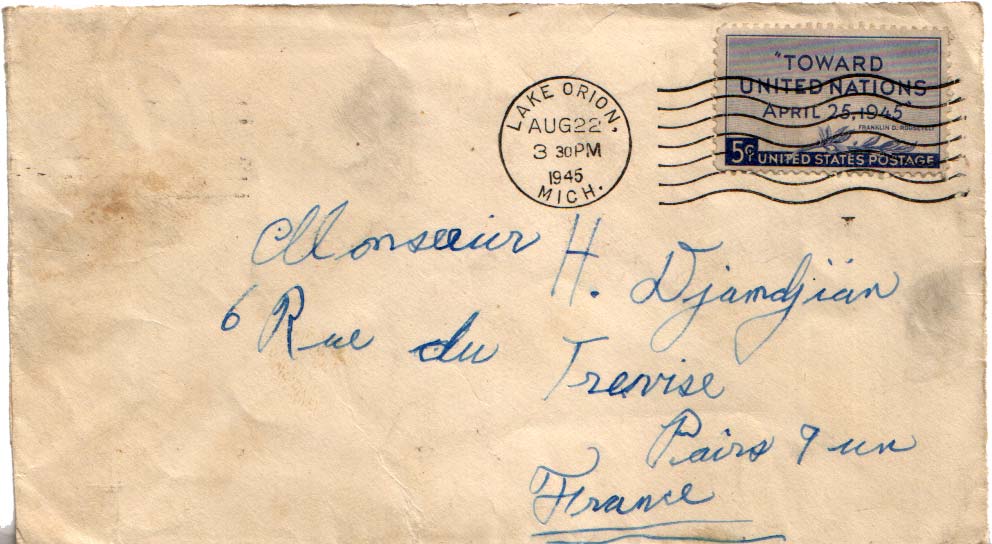 "TOWARD
UNITED NATIONS
APRIL 25, 1945"
FRANKLIN D. ROOSEVELT
5¢ UNITED STATES POSTAGE
LAKE ORION,
AUG 22
3 30 PM
1945
MICH.
Monsieur H. Djamdjian
6 Rue du Trevise
Pairs 9 un
France